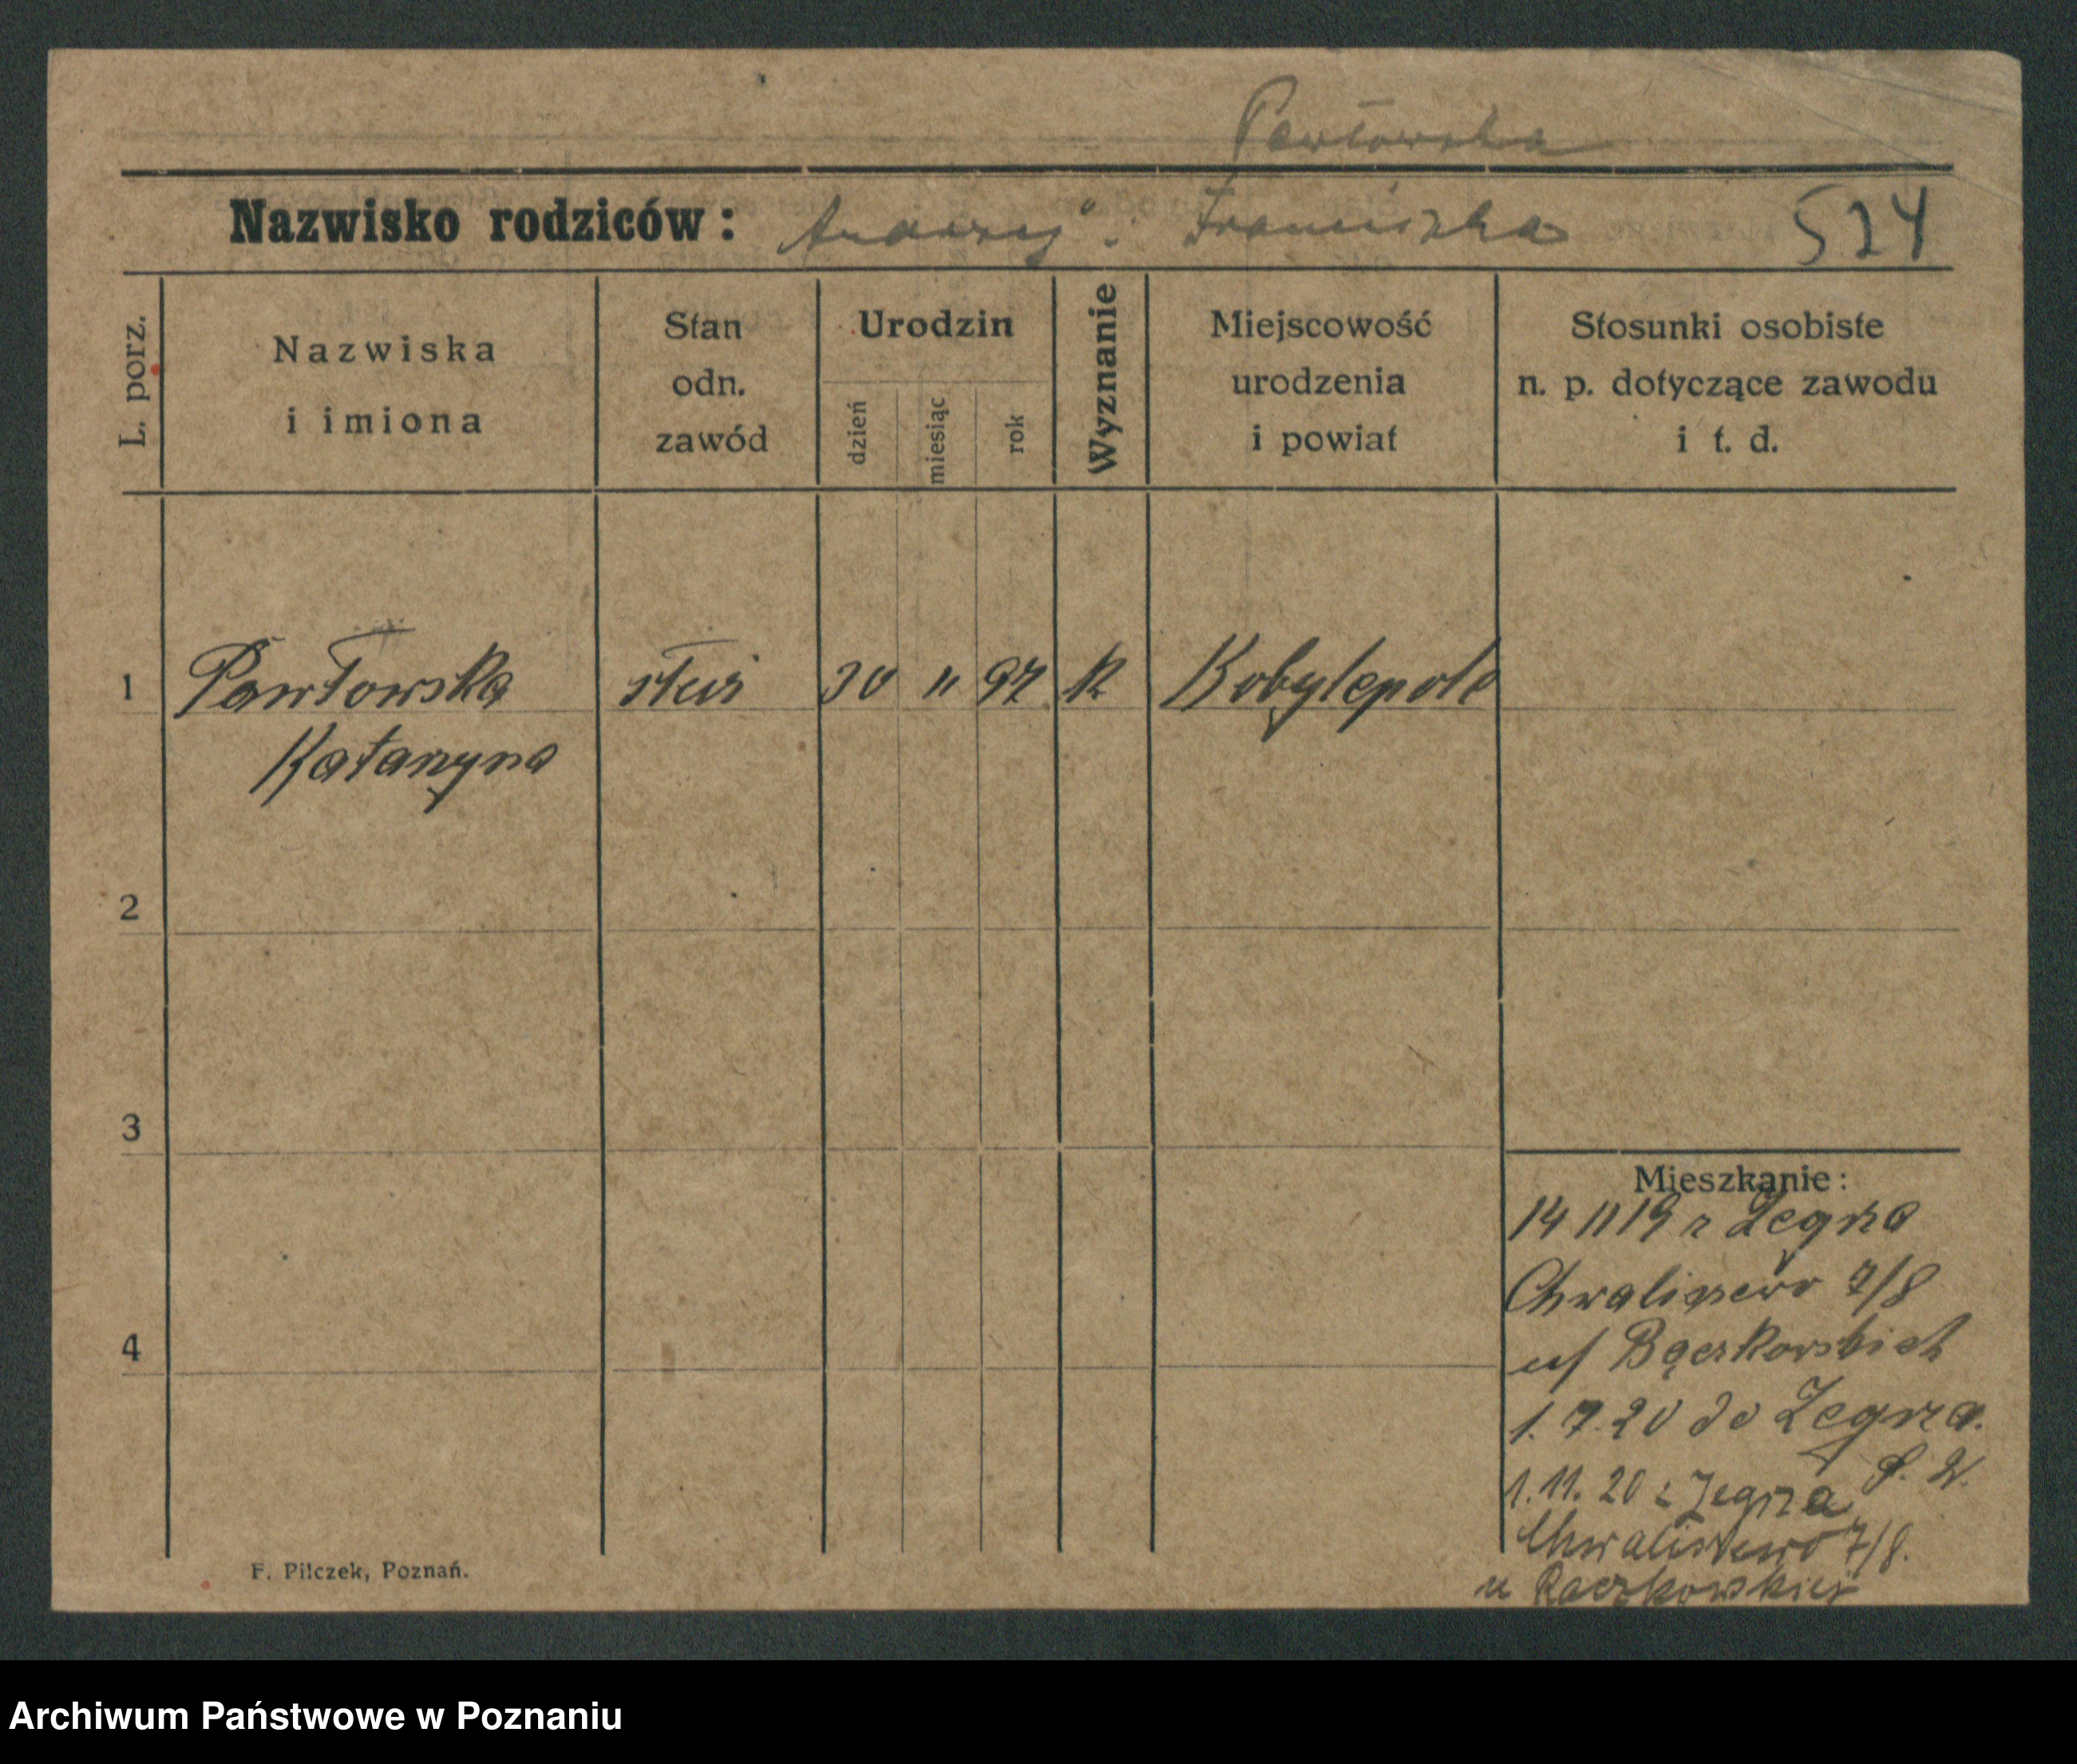 Pawłowska
Nazwisko rodziców: Andrzej i Franciszka 524
L. porz.
Nazwiska
i imiona
Stan
odn.
zawód
Urodzin
dzień
miesiąc
rok
Wyznanie
Miejscowość
urodzenia
i powiat
Stosunki osobiste
n. p. dotyczące zawodu
i t. d.
1 Pawłowska służ 30 11 97 k Kobylepole
Katarzyna
2
3
4
Mieszkanie:
14 11 19 z Żegrza
Chwaliszewo 7/8
u/ Bączkowskich
1.7.20 do Żegrza.
P. W.
1.11.20 z Żegrza
Chwaliszewo 7/8.
u Raczkowskiej
F. Pilczek, Poznań.
Archiwum Państwowe w Poznaniu